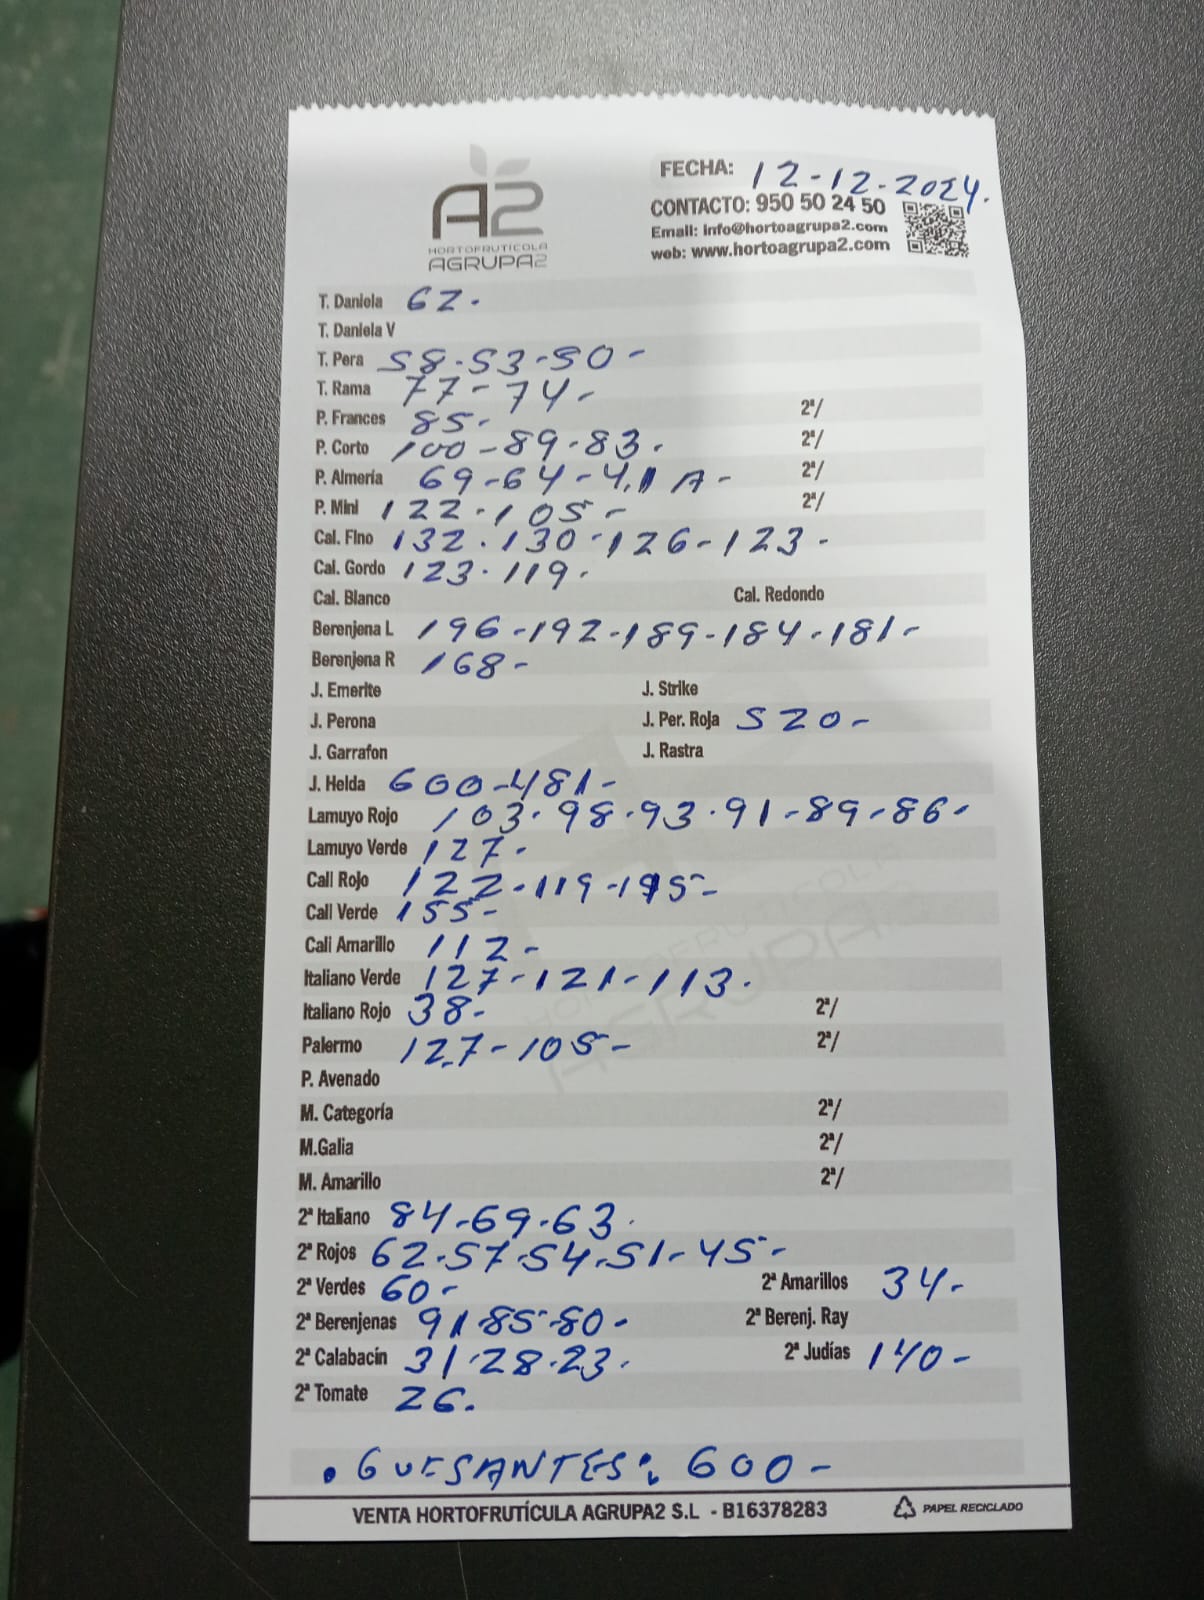 A2
HORTOFRUTICOLA
AGRUPA2
FECHA: 12-12-2024.
CONTACTO: 950 50 24 50
Email: info@hortoagrupa2.com
web: www.hortoagrupa2.com
T. Daniela 62.
T. Daniela V
T. Pera 58-53-50-
T. Rama 77-74-
P. Frances 85- 2ª/
P. Corto 100-89-83. 2ª/
P. Almería 69-64- A- 2ª/
P. Mini 122-105- 2ª/
Cal. Fino 132.130-126-123-
Cal. Gordo 123.119.
Cal. Blanco Cal. Redondo
Berenjena L 196-192-189-184-181-
Berenjena R 168-
J. Emerite J. Strike
J. Perona J. Per. Roja 520-
J. Garrafon J. Rastra
J. Helda 600-481-
Lamuyo Rojo 103.98.93.91-89-86-
Lamuyo Verde 127-
Cali Rojo 122-119-
Cali Verde 155-
Cali Amarillo 112-
Italiano Verde 127-121-113.
Italiano Rojo 38- 2ª/
Palermo 127-105- 2ª/
P. Avenado
M. Categoría 2ª/
M.Galia 2ª/
M. Amarillo 2ª/
2ª Italiano 84-69-63.
2ª Rojos 62-57-54-51-45-
2ª Verdes 60- 2ª Amarillos 34-
2ª Berenjenas 91-85-80- 2ª Berenj. Ray
2ª Calabacín 31-28-23. 2ª Judías 140-
2ª Tomate 26.
. GUISANTES: 600-
VENTA HORTOFRUTÍCULA AGRUPA2 S.L - B16378283 PAPEL RECICLADO